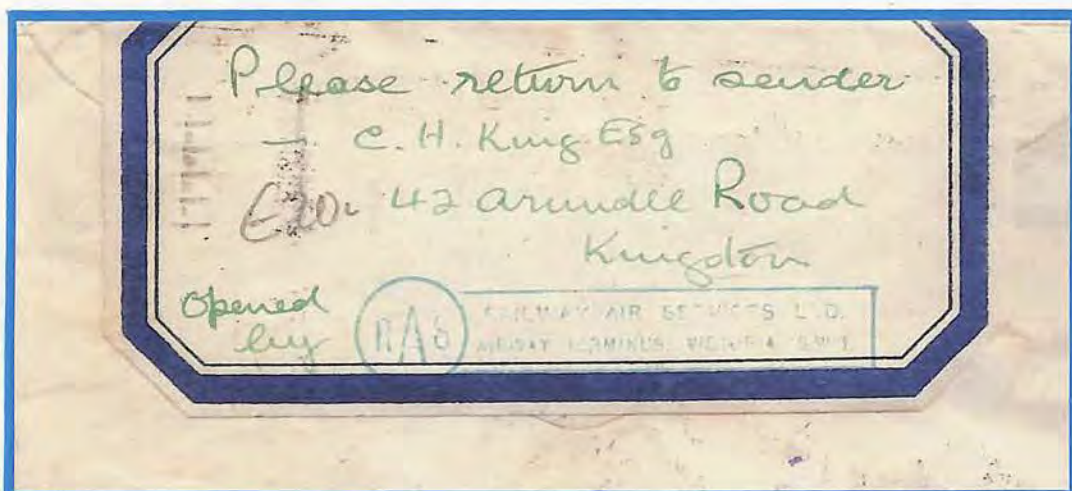 Please return to sender
C. H. King Esq
£20. 42 Arundle Road
Kingdton
Opened
by
RAS
RAILWAY AIR SERVICES LTD.
AIRWAY TERMINUS. VICTORIA S.W.1.